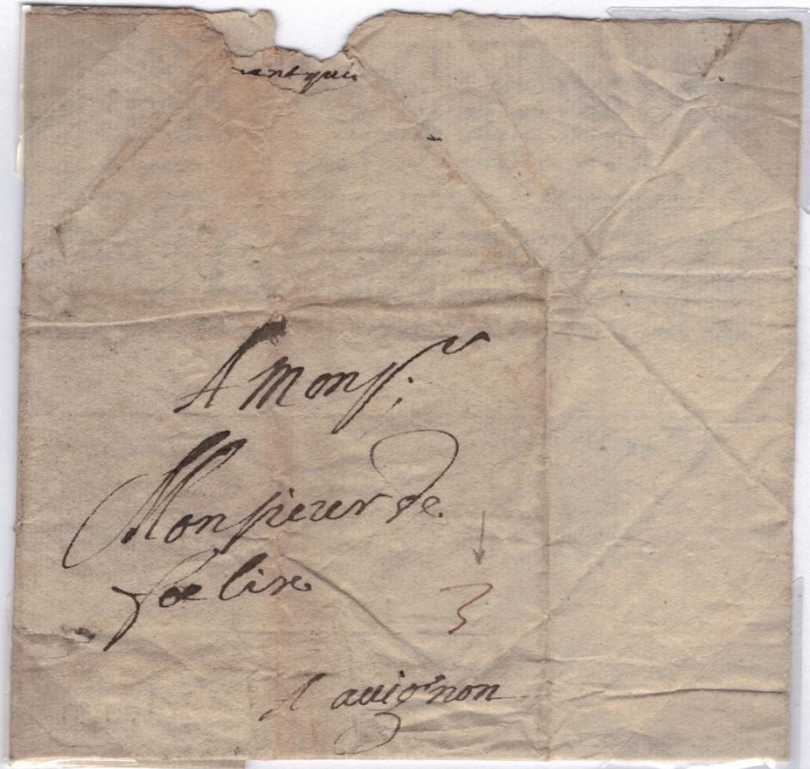 A Mons.r
Monsieur de
foelix
3
A auignon